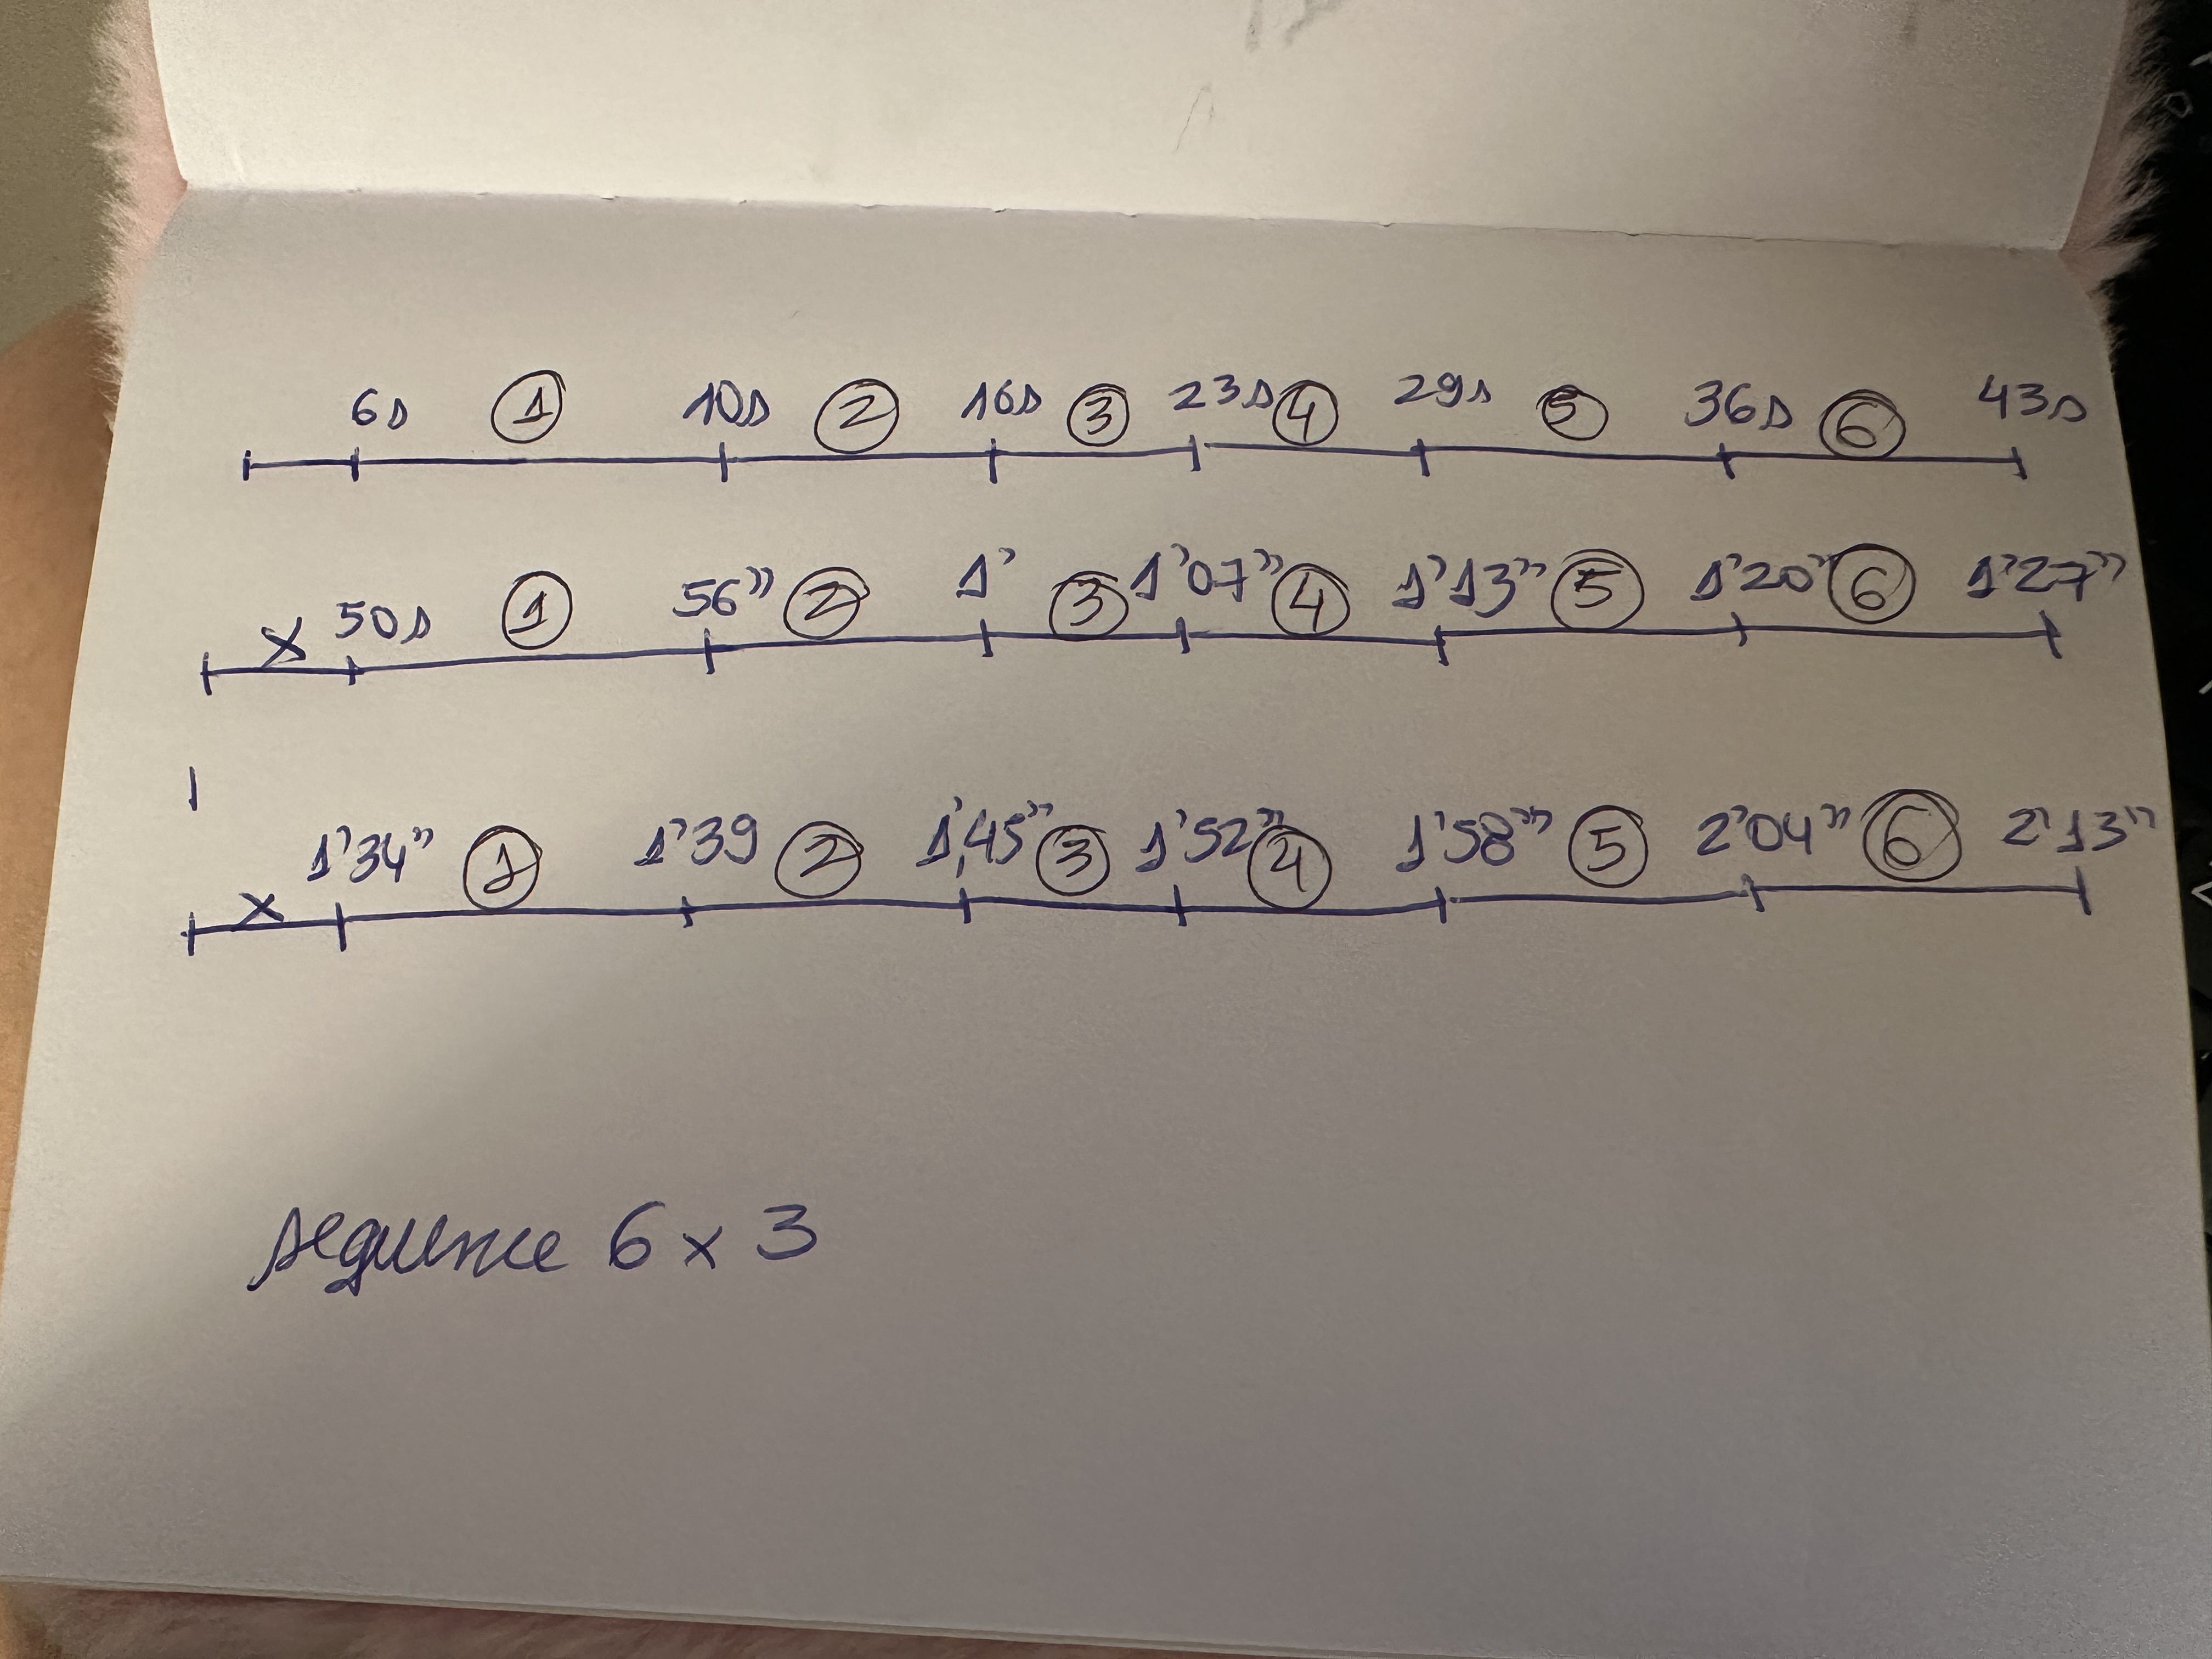 6s ① 10s ② 16s ③ 23s ④ 29s ⑤ 36s ⑥ 43s
x 50s ① 56" ② 1' ③ 1'07" ④ 1'13" ⑤ 1'20" ⑥ 1'27"
x 1'34" ① 1'39 ② 1'45" ③ 1'52" ④ 1'58" ⑤ 2'04" ⑥ 2'13"
séquence 6 x 3